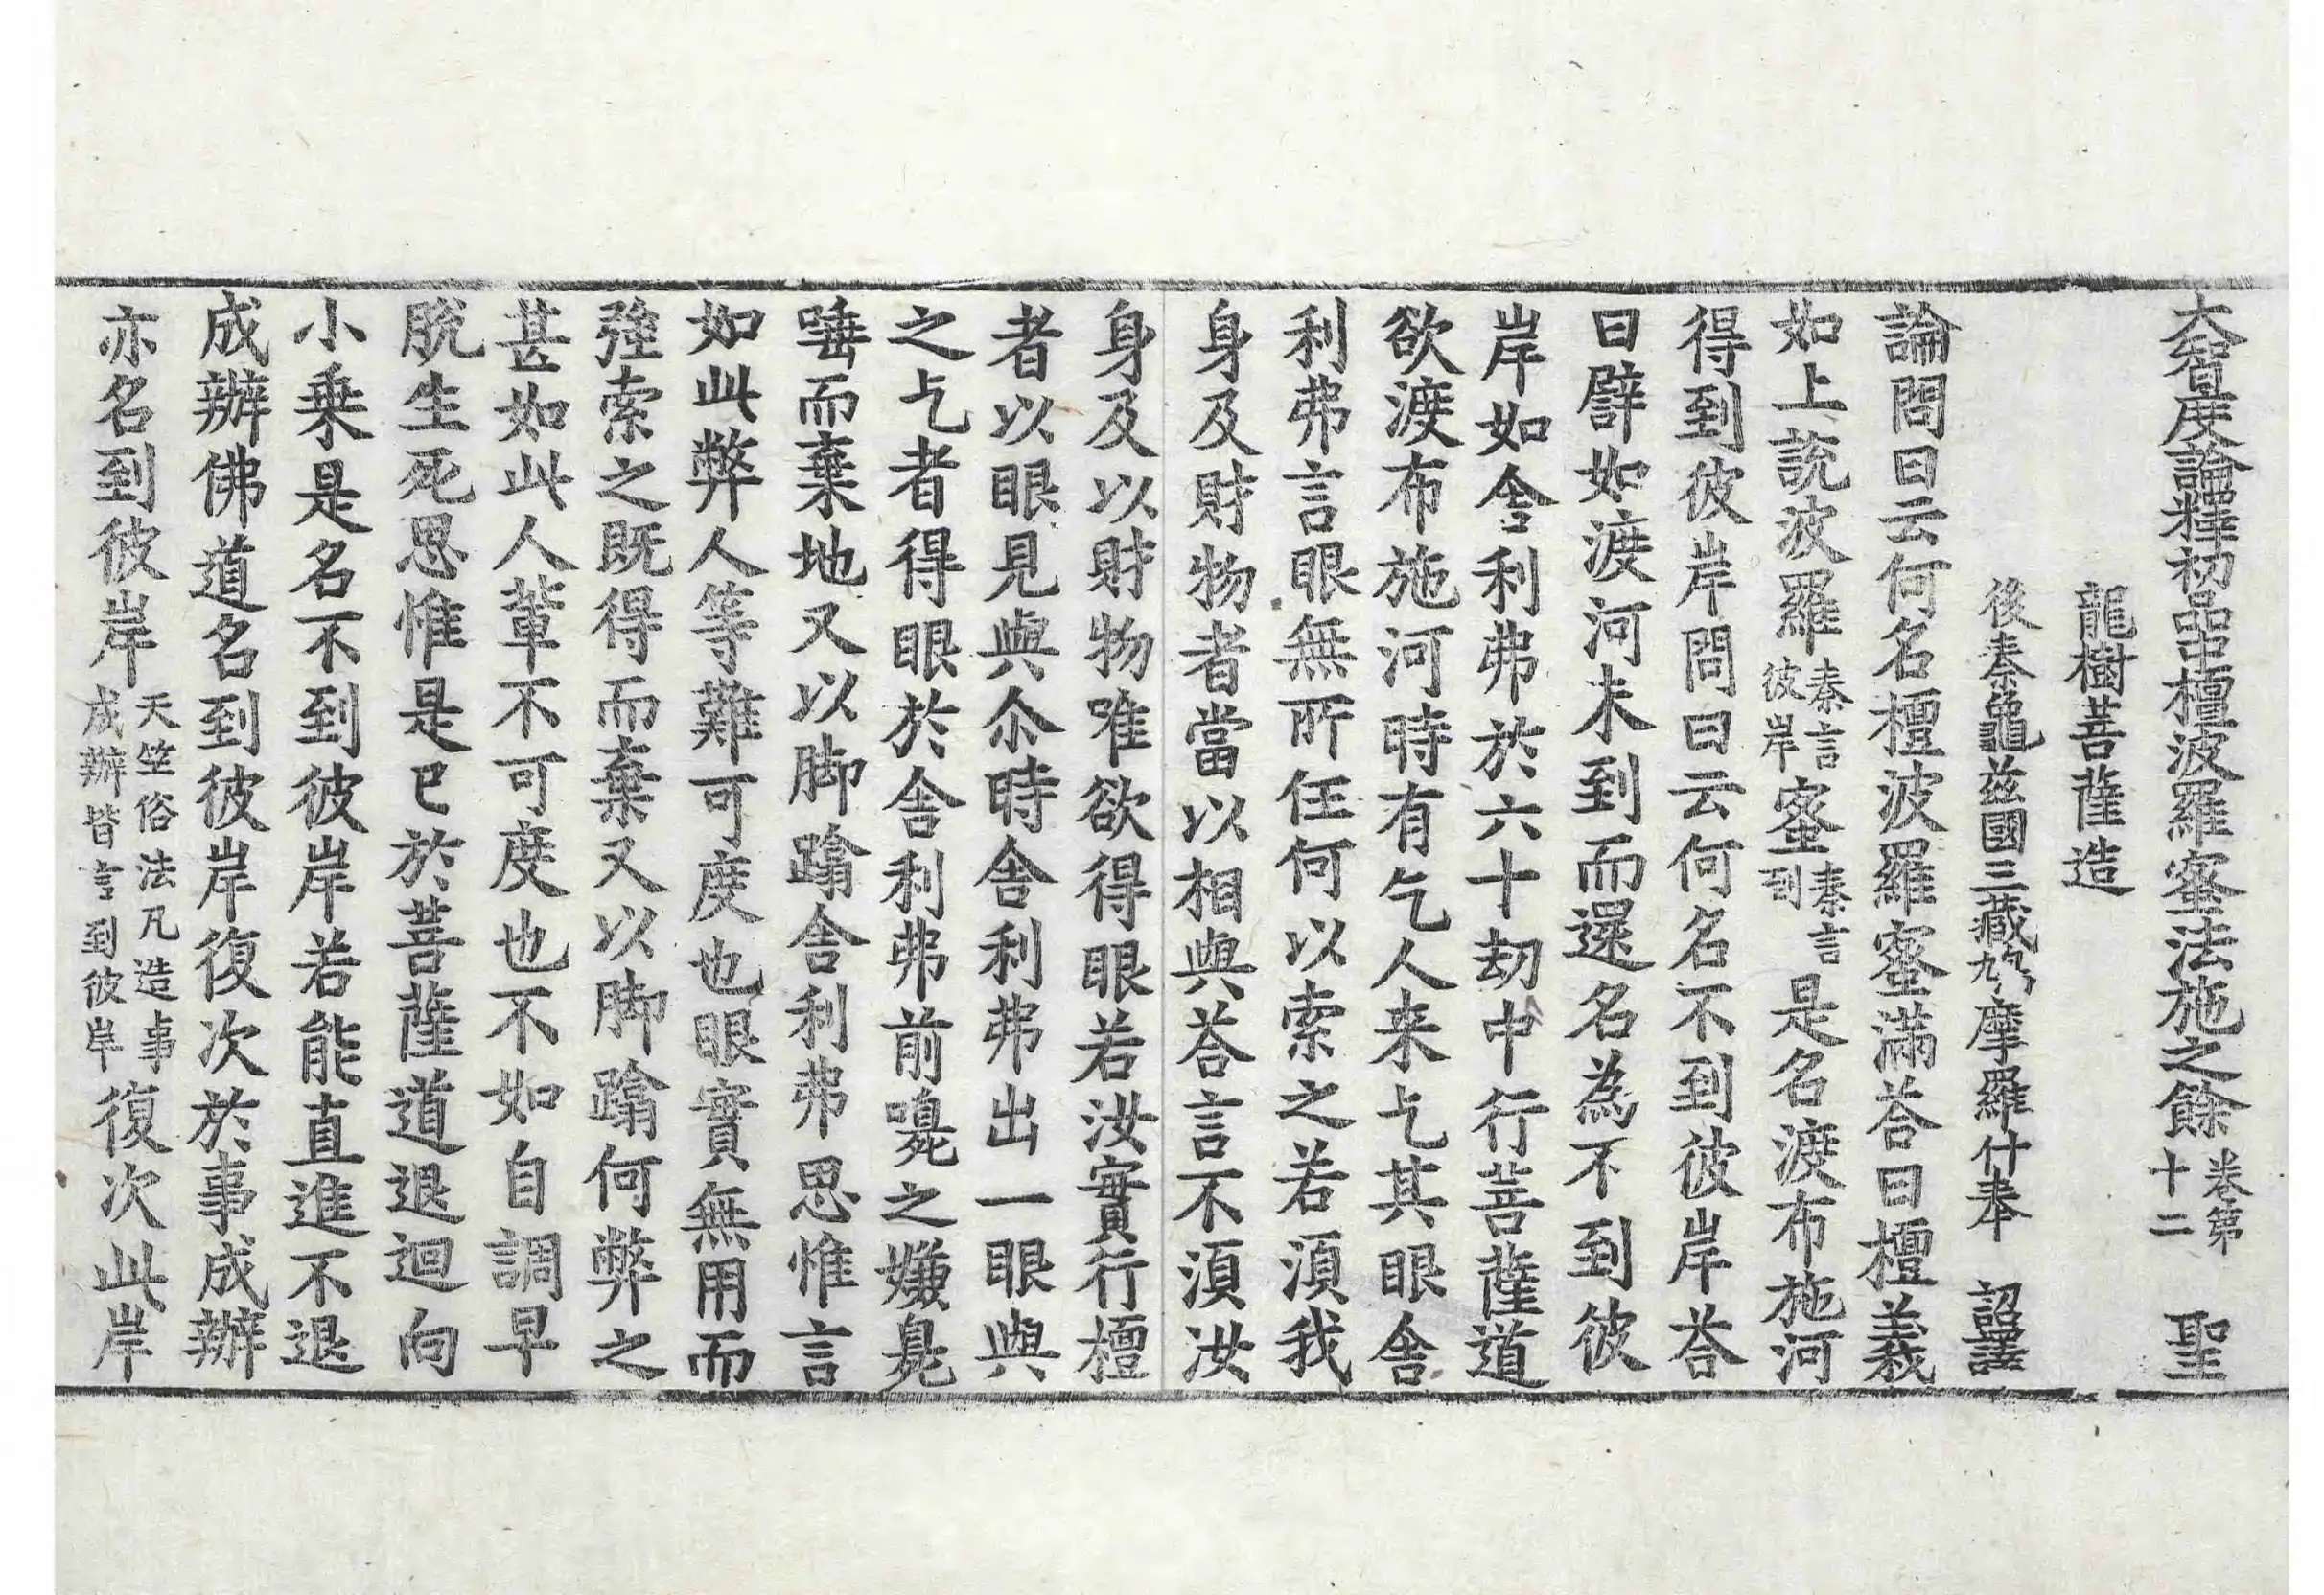 大智度論釋初品中檀波羅蜜法施之餘 卷第十二 聖
龍樹菩薩造
後秦龜茲國三藏鳩摩羅什奉 詔譯
論問曰云何名檀波羅蜜滿荅曰檀義
如上說波羅秦言彼岸蜜秦言到是名渡布施河
得到彼岸問曰云何名不到彼岸荅
曰譬如渡河未到而還名為不到彼
岸如舍利弗於六十劫中行菩薩道
欲渡布施河時有乞人来乞其眼舍
利弗言眼無所任何以索之若湏我
身及財物者當以相與荅言不湏汝
身及以財物唯欲得眼若汝實行檀
者以眼見與尒時舍利弗出一眼與
之乞者得眼於舍利弗前嗅之嫌臭
唾而棄地又以脚蹹舍利弗思惟言
如此弊人等難可度也眼實無用而
強索之既得而棄又以脚蹹何弊之
甚如此人軰不可度也不如自調早
脫生死思惟是已於菩薩道退迴向
小乗是名不到彼岸若能直進不退
成辦佛道名到彼岸復次於事成辦
亦名到彼岸天竺俗法凡造事成辦皆言到彼岸復次此岸